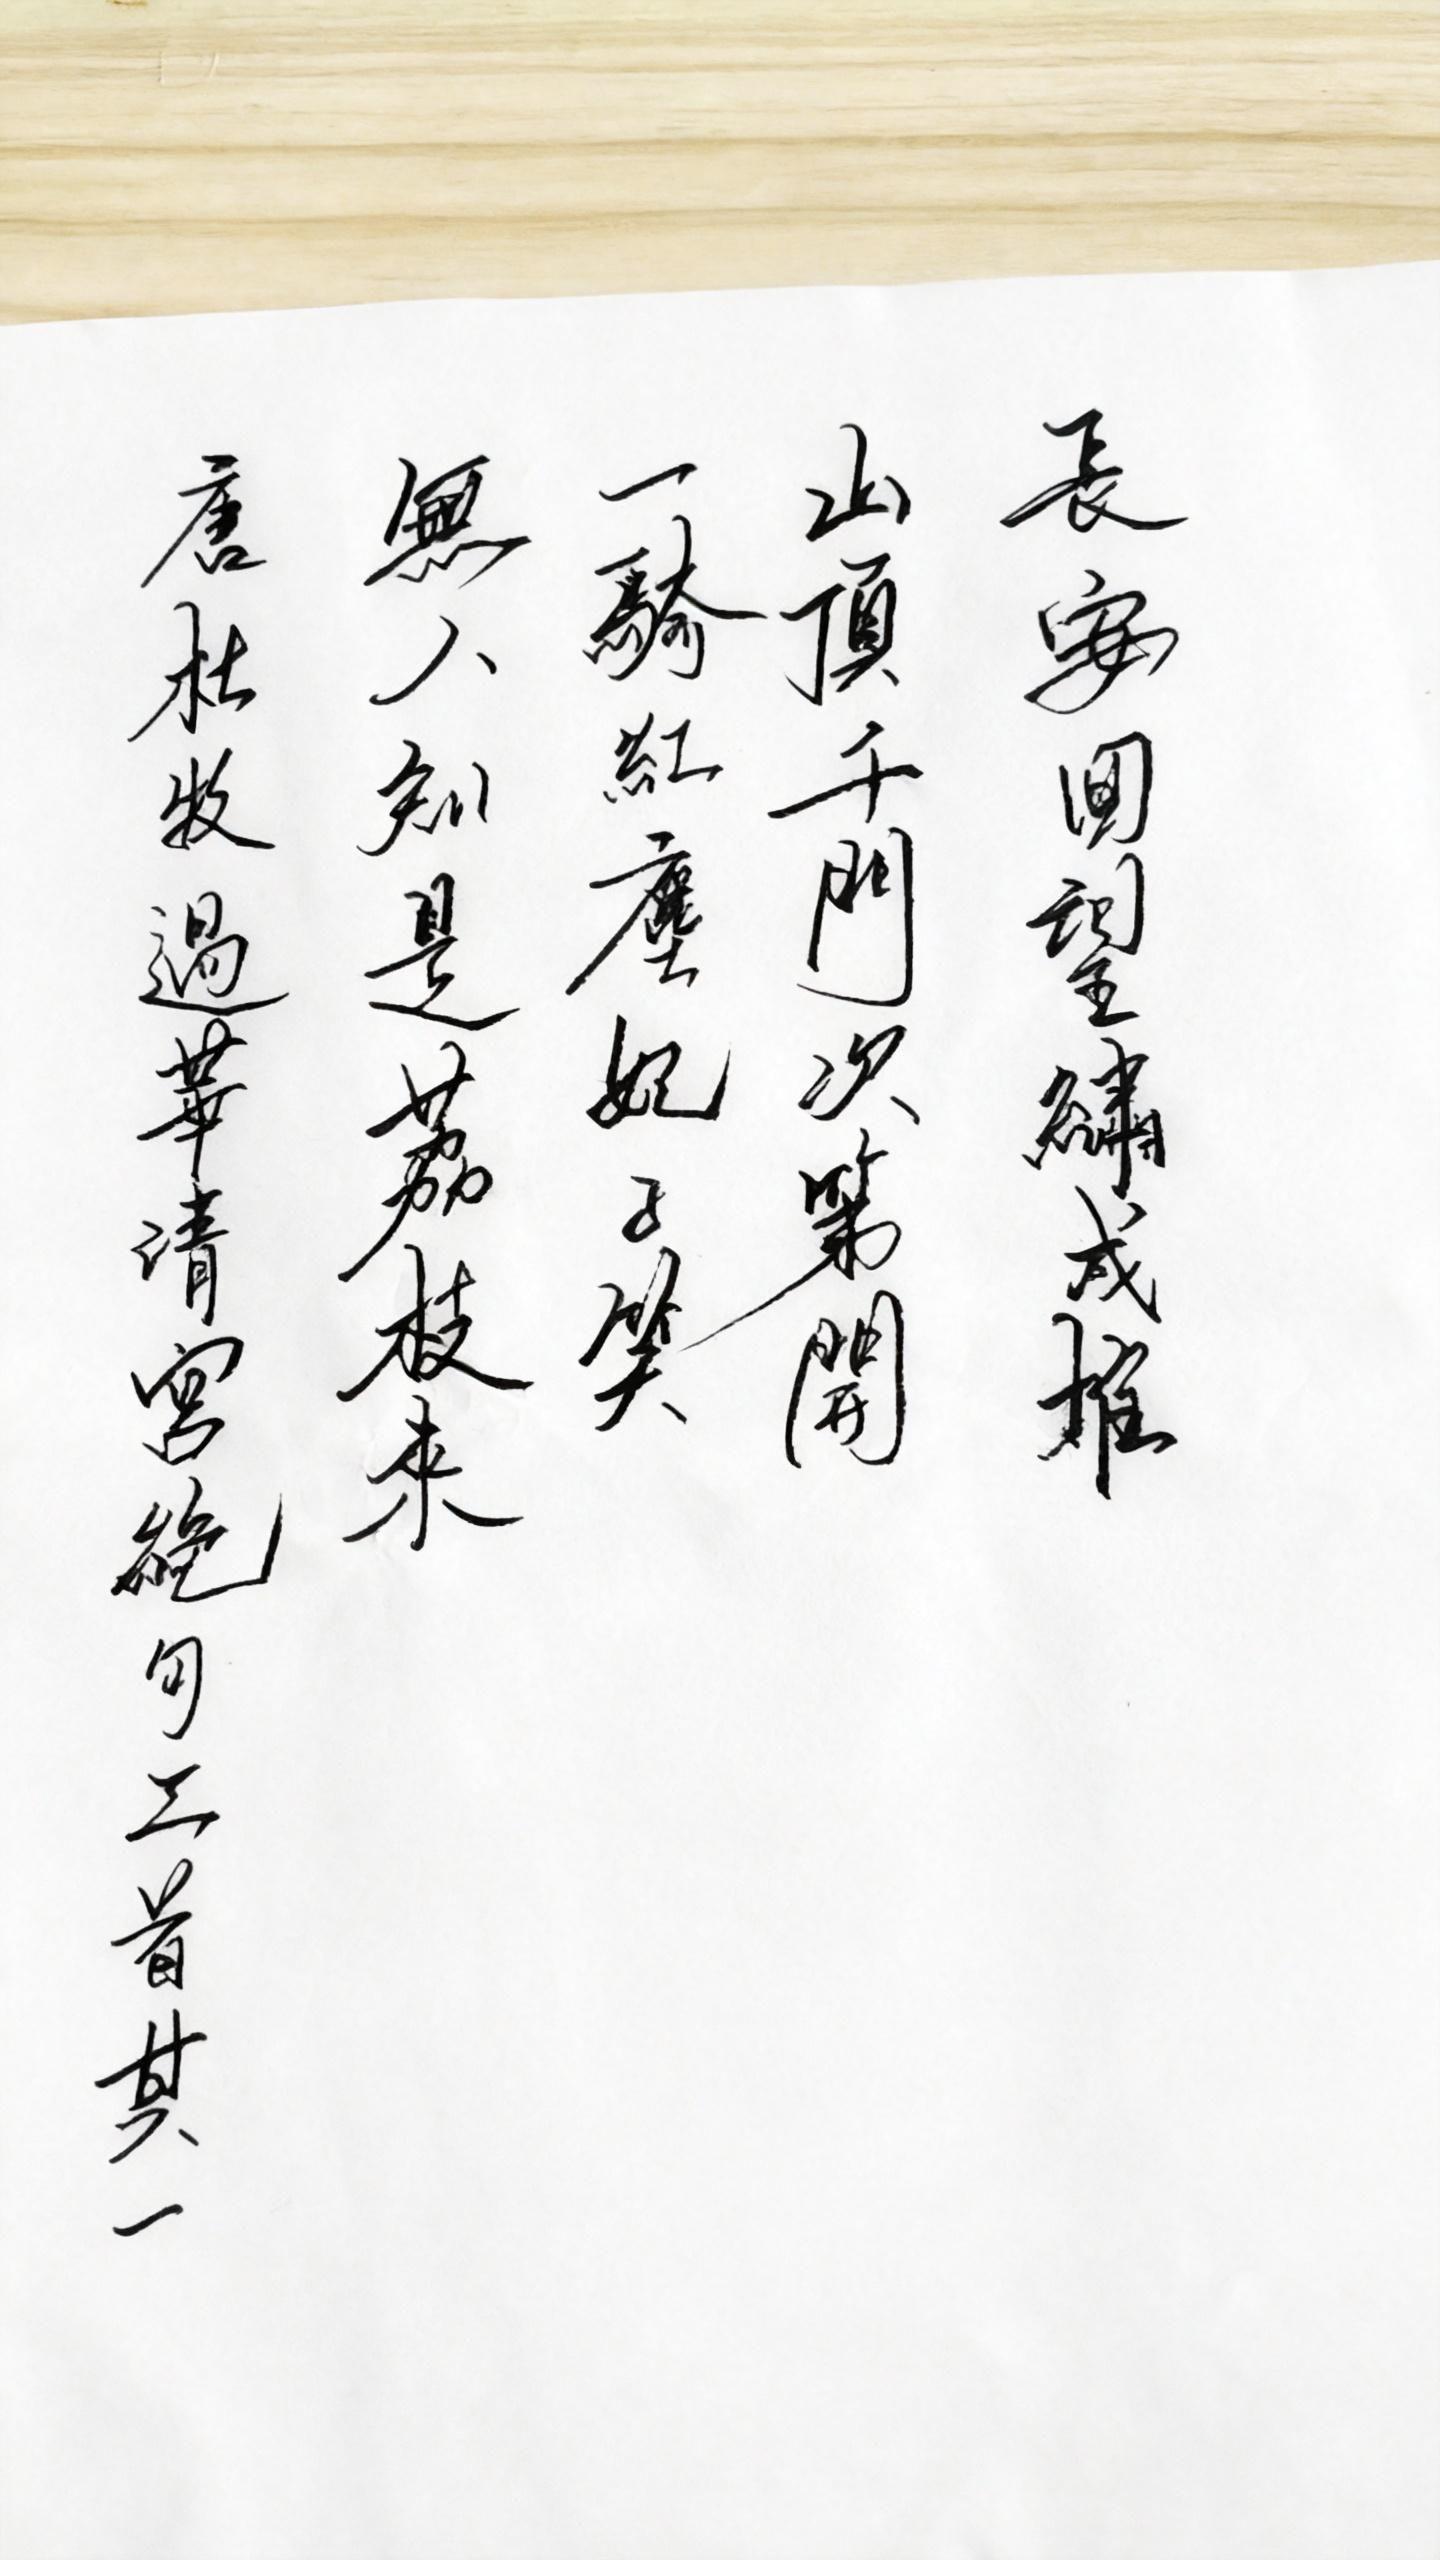 長安回望繡成堆
山頂千門次第開
一騎紅塵妃子笑
無人知是荔枝來
唐杜牧過華清宮絕句三首其一